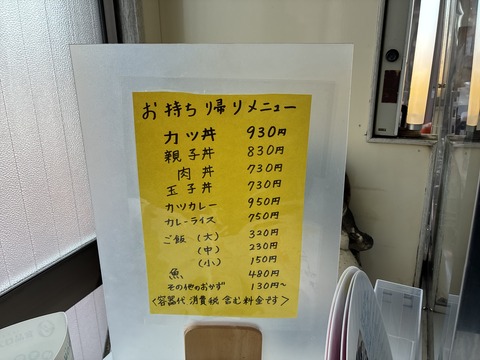 お持ち帰りメニュー
カツ丼 930円
親子丼 830円
肉丼 730円
玉子丼 730円
カツカレー 950円
カレーライス 750円
ご飯(大) 320円
(中) 230円
(小) 150円
魚 480円
その他のおかず 130円~
<容器代消費税含む料金です>